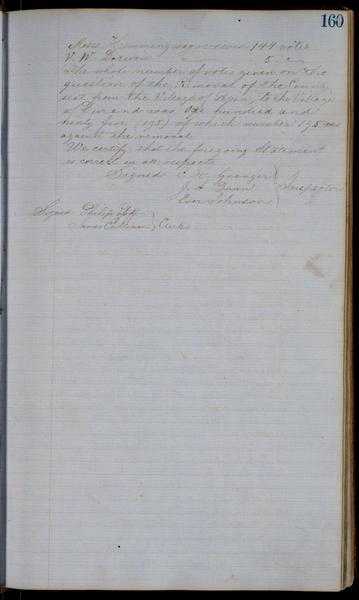 160
Moses Hemmingway received 149 votes
V. W. Dorwin " 5 "
The whole number of votes given on the
question of the Removal of the County
seat from the Village of Pepin, to the Village
of Durand was One hundred and
ninty five (195) of which number 195 was
against the removal
We certify that the foregoing Statement
is correct in all respects
Signed C. H. Granger
J. A. Gunn Inspectors
Ever Johnson
Signed Philip
James Clerks